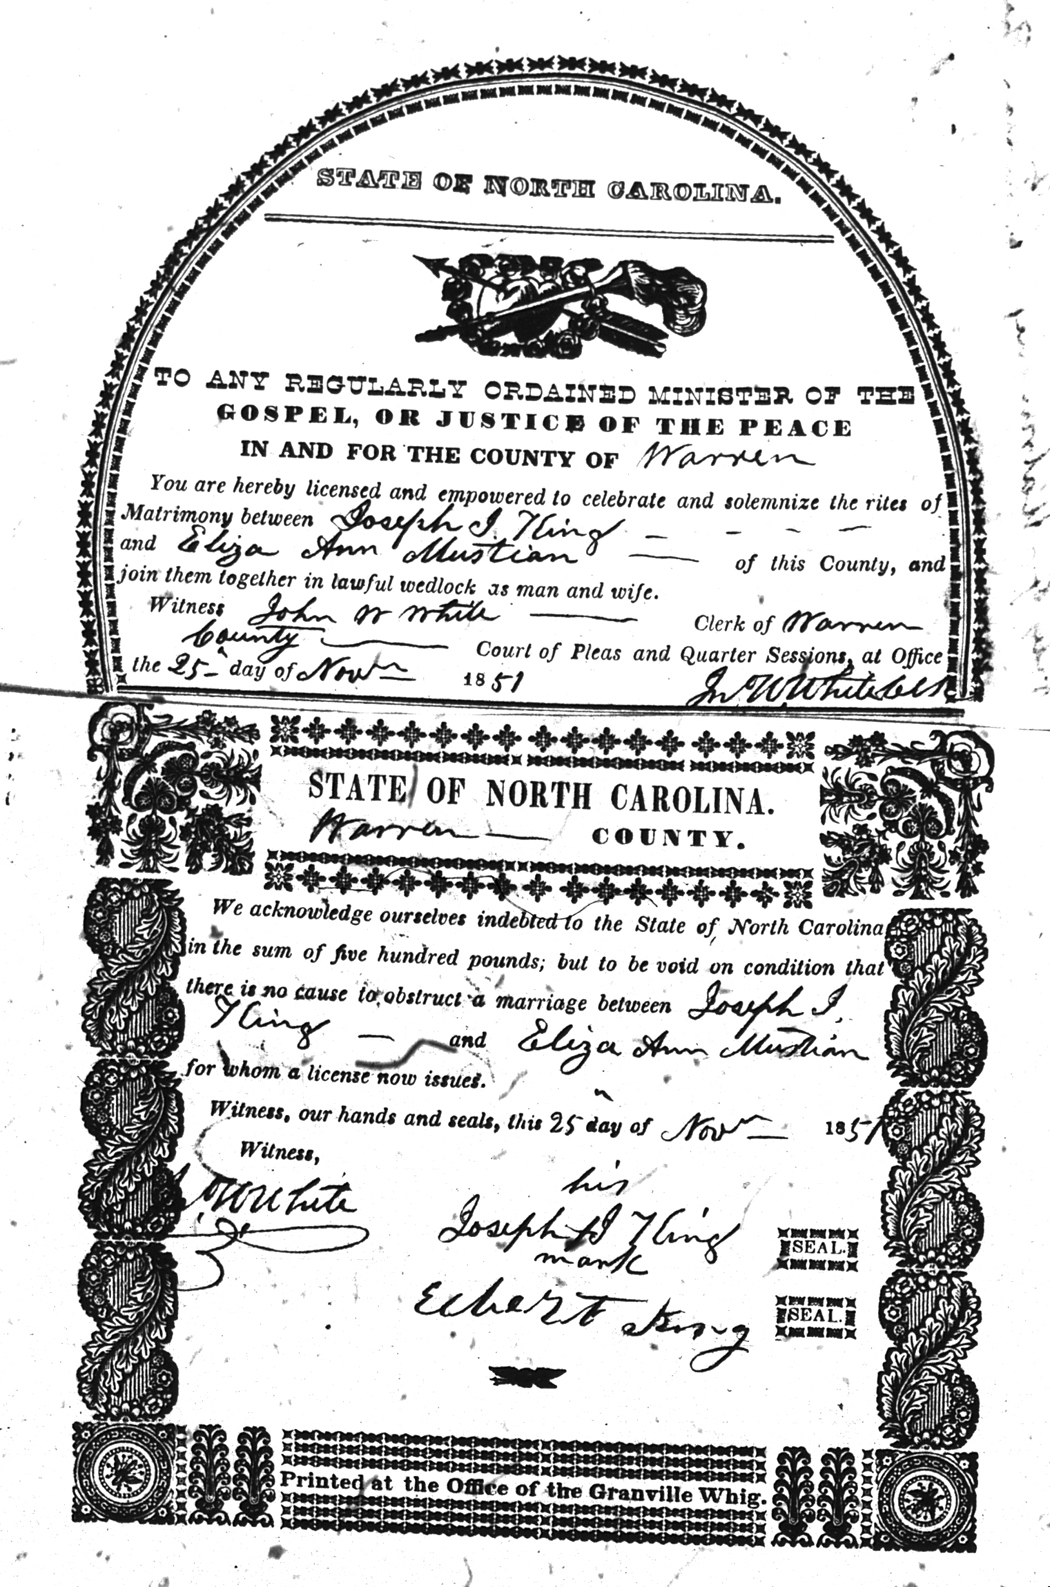 STATE OF NORTH CAROLINA.
TO ANY REGULARLY ORDAINED MINISTER OF THE
GOSPEL, OR JUSTICE OF THE PEACE
IN AND FOR THE COUNTY OF Warren
You are hereby licensed and empowered to celebrate and solemnize the rites of
Matrimony between Joseph J. King
and Eliza Ann Mustian — of this County, and
join them together in lawful wedlock as man and wife.
Witness John W White — Clerk of Warren
County — Court of Pleas and Quarter Sessions, at Office
the 25 day of Novr 1851
Jn W White
STATE OF NORTH CAROLINA.
Warren — COUNTY.
We acknowledge ourselves indebted to the State of North Carolina
in the sum of five hundred pounds; but to be void on condition that
there is no cause to obstruct a marriage between Joseph J.
King — and Eliza Ann Mustian
for whom a license now issues.
Witness, our hands and seals, this 25 day of Novr — 1851
Witness,
W White
his
Joseph J King SEAL.
mark
King SEAL.
Printed at the Office of the Granville Whig.